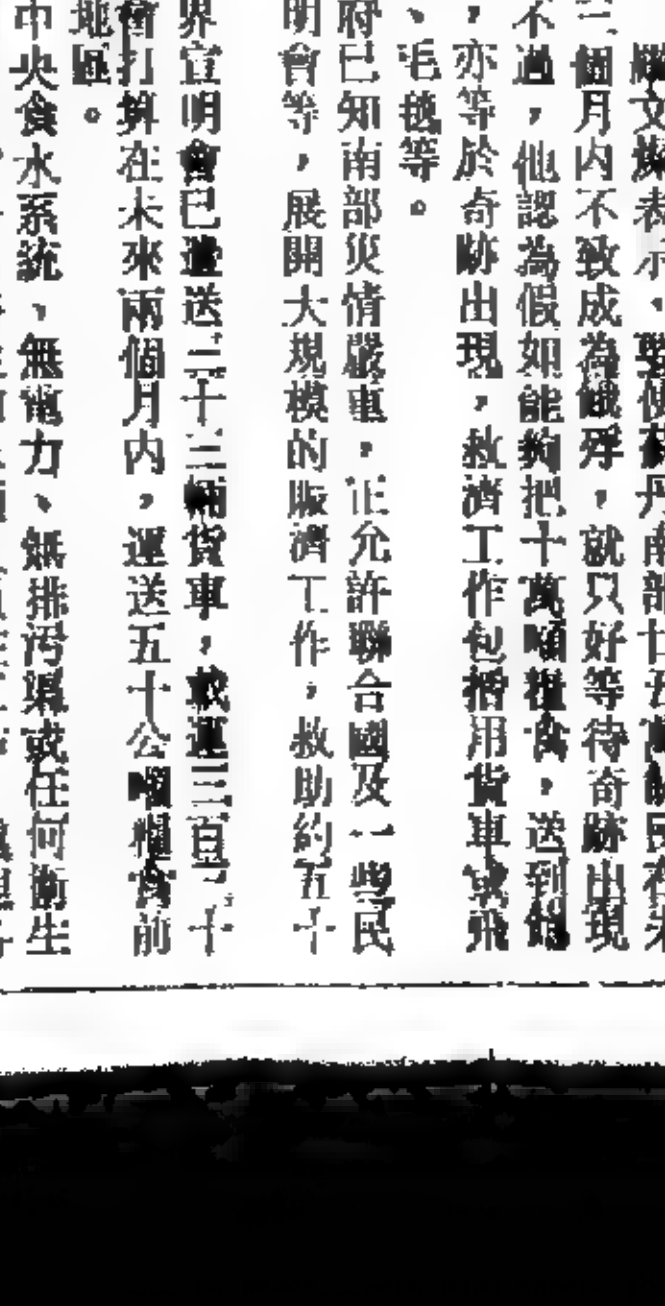 文燦表示，要使蘇丹南部廿五萬饑民在未
三個月內不致成為餓殍，就只好等待奇跡出現
不過，他認為假如能夠把十萬噸糧食，送到
，亦等於奇跡出現，救濟工作包括用貨車或飛
、毛毯等。
府已知南部災情嚴重，正允許聯合國及一些民
明會等，展開大規模的賑濟工作，救助約五十
界宣明會已運送三十三輛貨車，載運三百十
會打算在未來兩個月內，運送五十公噸糧食前
地區。
中央食水系統，無電力、無排污渠或任何衞生